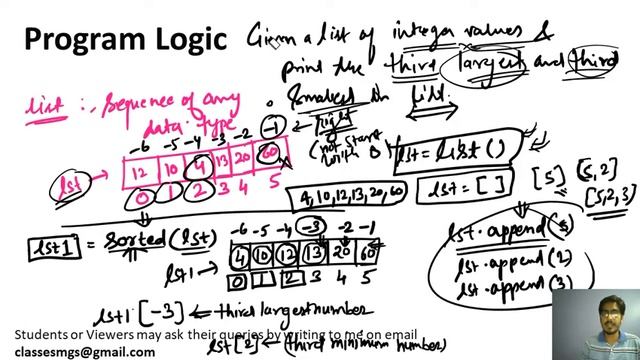 Program Logic
Given a list of integer values &
print the third largest and third
smallest in list.
list :- Sequence of any
data type
-6 -5 -4 -3 -2 -1
lst → 12 10 4 13 20 60
0 1 2 3 4 5
Right
(not start
with 0)
lst = list()
lst = [ ]
[5] [5,2]
[5,2,3]
4, 10, 12, 13, 20, 60
lst.append(5)
lst.append(2)
lst.append(3)
lst1 = sorted(lst)
-6 -5 -4 -3 -2 -1
lst1 → 4 10 12 13 20 60
0 1 2 3 4 5
lst1[-3] ← third largest number
Students or Viewers may ask their queries by writing to me on email
classesmgs@gmail.com
lst[2] ← (third minimum number)